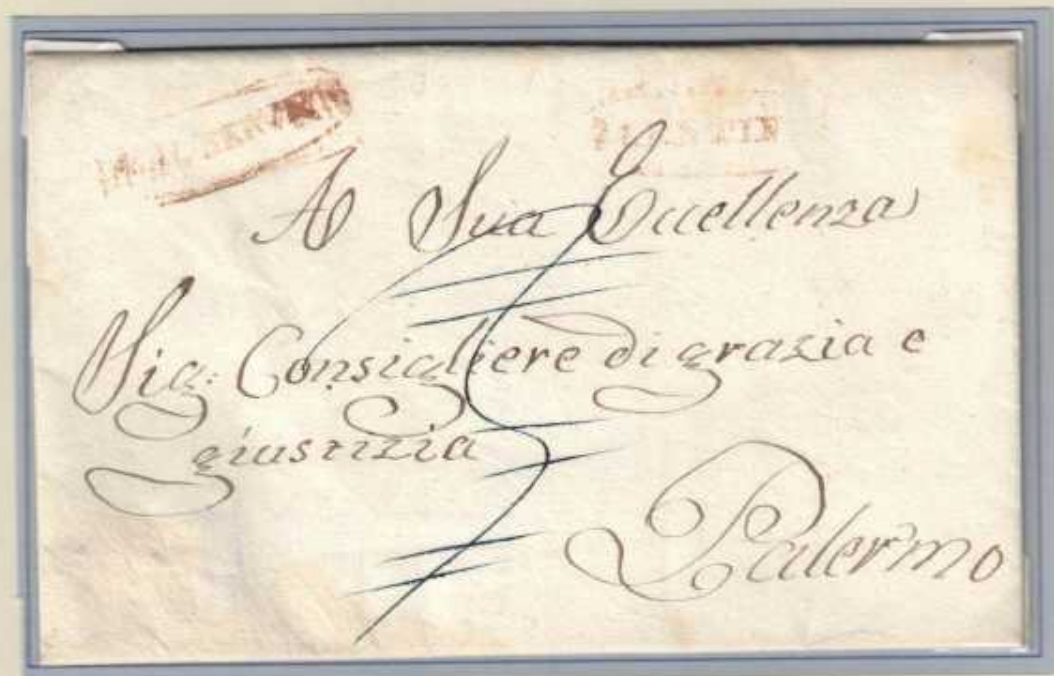 A Sua Eccellenza
Sig: Consigliere di grazia e
giustizia
Palermo